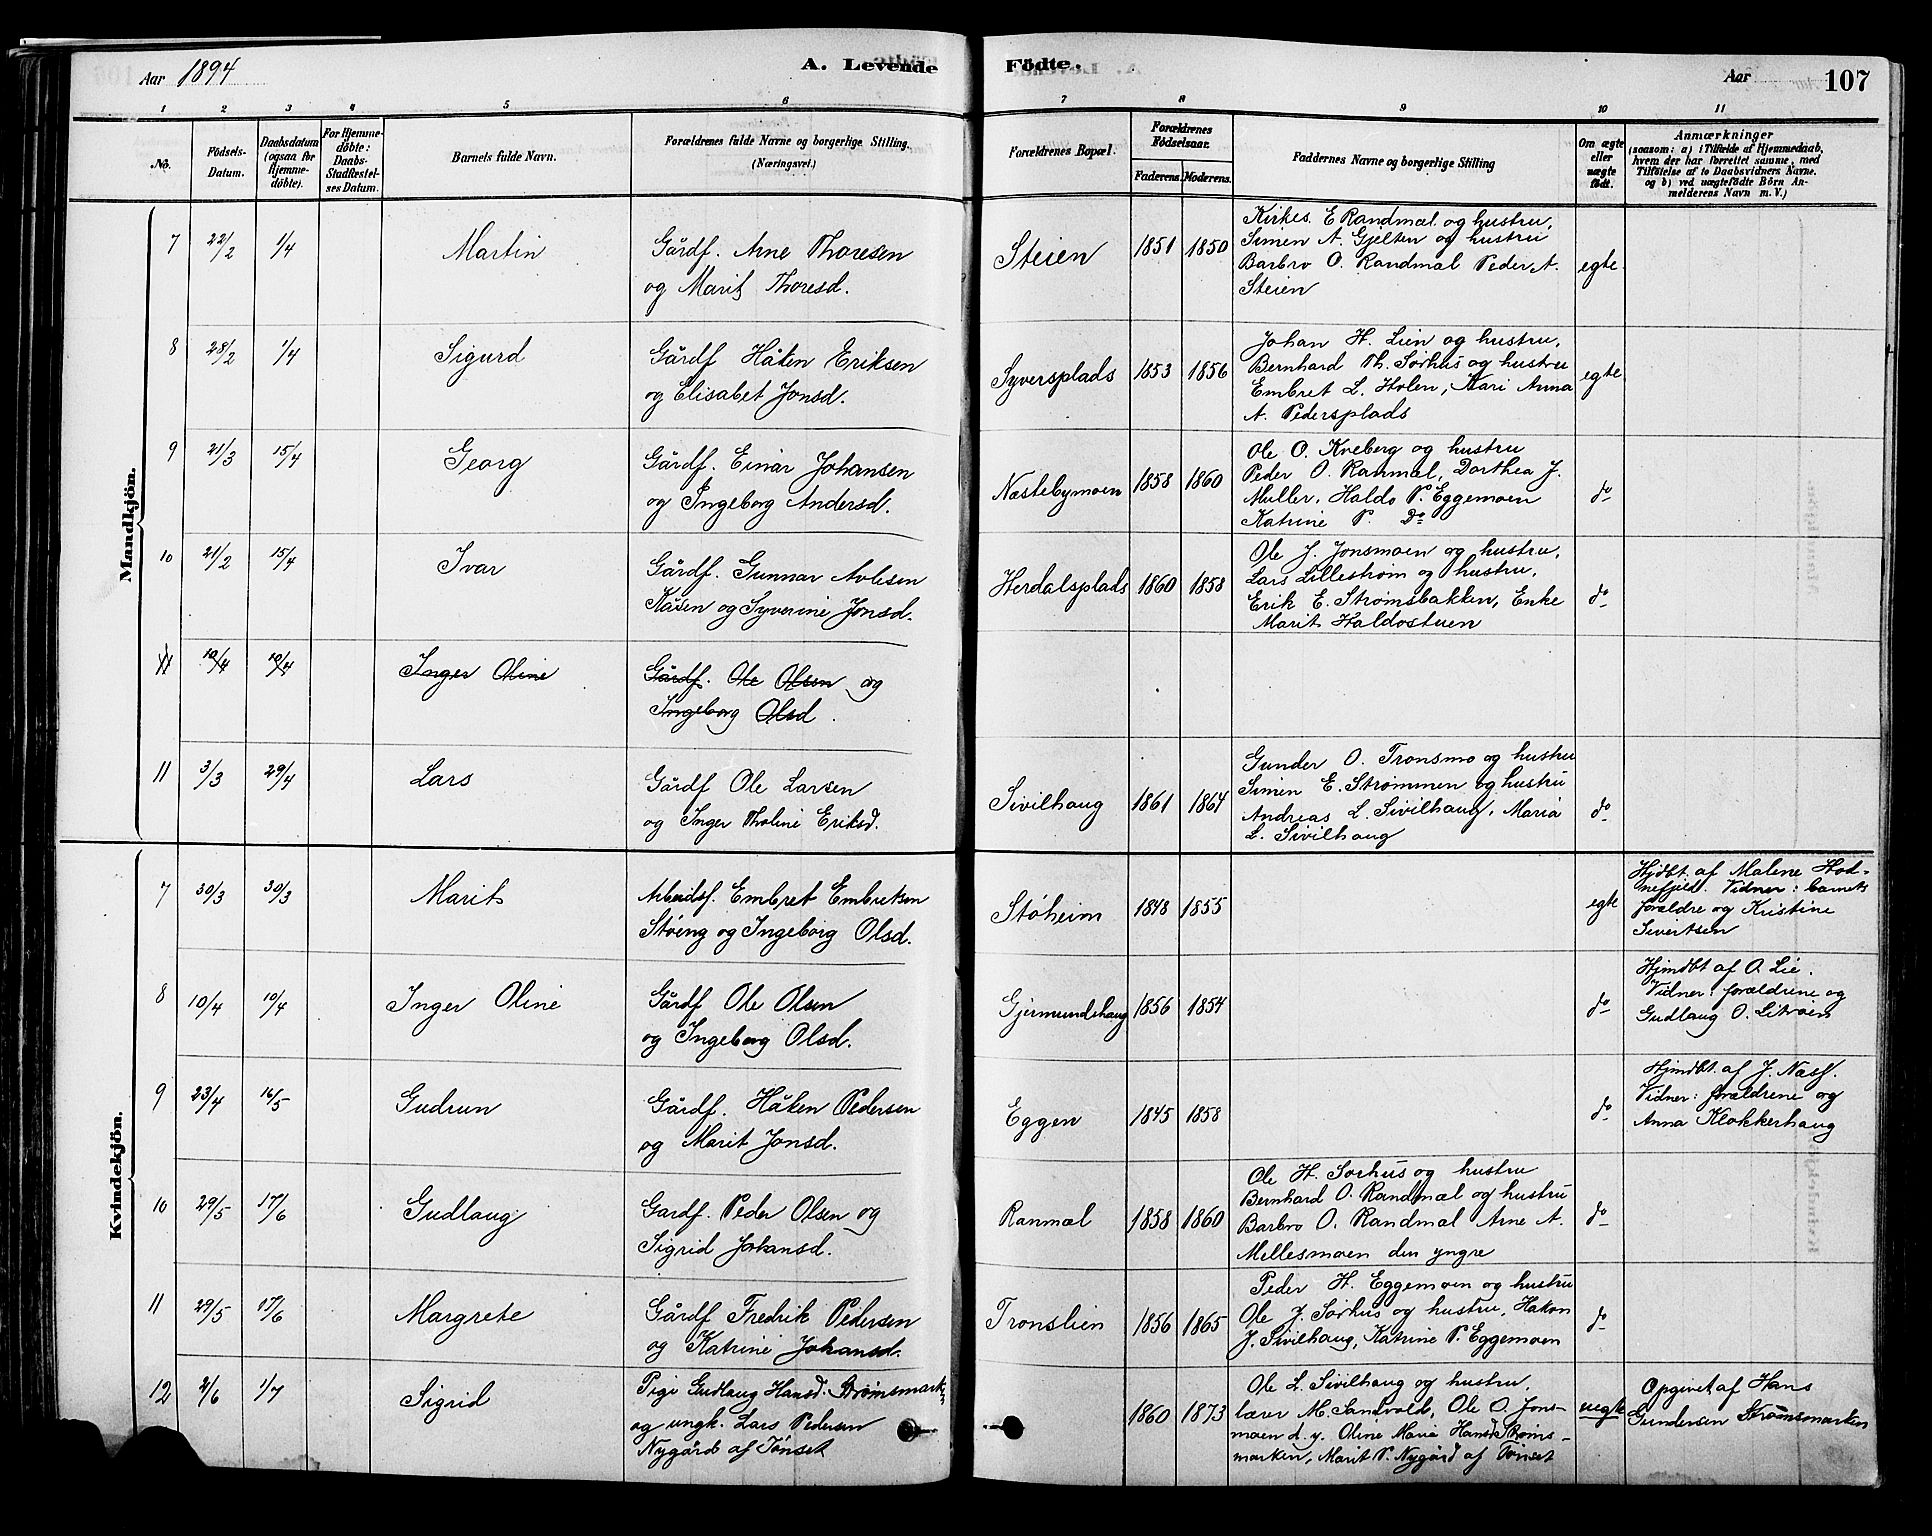 Aar 1894
A. Levende Födte.
Aar
107
1 2 3 4 5 6 7 8 9 10 11
No.
Födsels-
Datum.
Daabsdatum
(ogsaa for
Hjemme-
döbte).
For Hjemme-
döbte:
Daabs-
Stadfæstel-
ses Datum.
Barnets fulde Navn.
Forældrenes fulde Navne og borgerlige Stilling.
(Næringsvei.)
Forældrenes Bopæl.
Forældrenes
Födselsaar.
Faderens. Moderens.
Faddernes Navne og borgerlige Stilling
Om ægte
eller
uægte
født.
Anmærkninger
(saasom: a) i Tilfælde af Hjemmedaab,
hvem der har forrettet samme, med
Tilføielse af to Daabsvidners Navne.
og b) ved uægtefödte Börn An-
melderens Navn m. V.)
Mandkjön.
7 22/2 1/4 Martin
Gårdf. Arne Thoresen
og Marit Thoresd.
Steien 1851 1850
Kirkes. E Randmæl og hustru,
Simen A. Gjelten og hustru
Barbro O. Randmæl Peder A.
Steien
egte
8 28/2 1/4 Sigurd
Gårdf Håken Eriksen
og Elisabet Jonsd.
Syversplads 1853 1856
Johan H. Lien og hustru,
Bernhard Th. Sorhus og hustru
Embret L. Holen, Kari Anna
A. Pedersplads
egte
9 21/3 15/4 Georg
Gårdf. Einar Johansen
og Ingeborg Andersd.
Næstebymoen 1858 1860
Ole O. Kveberg og hustru
Peder O. Ranmæl, Dorthea J.
Muller, Haldo P. Eggemoen
Katrine P. Do
do
10 21/2 15/4 Ivar
Gårdf. Gunnar Avlesen
Kåsen og Syverine Jonsd.
Herdalsplads 1860 1858
Ole J. Jonsmoen og hustru,
Lars Lillestrøm og hustru,
Erik E. Strømsbakken, Enke
Marit Haldostuen
do
11 10/4 10/4 Inger Oline
Gårdf. Ole Olsen og
Ingeborg Olsd.
11 3/3 29/4 Lars
Gårdf Ole Larsen
og Inger Tholine Eriksd.
Sivilhaug 1861 1864
Gunder O. Tronsmo og hustru
Simen E. Strømmen og hustru
Andreas L. Sivilhaug, Maria
L. Sivilhaug
do
Kvindekjön.
7 30/3 30/3 Marit
Arbeidsf. Embret Embretsen
Støeng og Ingeborg Olsd.
Støheim 1848 1855
egte
Hjdbt af Malene Hod-
nefjeld. Vidner: barnets
forældre og Kristine
Sivertsen
8 10/4 10/4 Inger Oline
Gårdf Ole Olsen
og Ingeborg Olsd.
Gjermundshaug 1856 1854
do
Hjmdbt af O. Lie.
Vidner: forældrene og
Gudlaug O. Litroen
9 23/4 16/5 Gudrun
Gårdf. Håken Pedersen
og Marit Jonsd.
Eggen 1845 1858
do
Hjmdbt af J. Næss.
Vidner: forældrene og
Anna Klokkerhaug
10 29/5 17/6 Gudlaug
Gardf. Peder Olsen og
Sigrid Johansd.
Ranmæl 1858 1860
Ole H. Sorhus og hustru
Bernhard O. Randmæl og hustru
Barbro O. Randmæl Arne A.
Mellesmoen den yngre
do
11 29/5 17/6 Margrete
Gårdf Fredrik Pedersen
og Katrine Johansd.
Tronslien 1856 1865
Peder H. Eggemoen og hustru
Ole J. Sorhus og hustru, Hakon
J. Sivilhaug, Katrine P. Eggemoen
do
12 2/6 1/7 Sigrid
Pige Gudlaug Hansd. Strømsmark.
og ungk. Lars Pedersen
Nygård af Tønset
1860 1873
Ole L. Sivilhaug og hustru,
lærer M. Sandvold, Ole O. Jons-
moen d.y. Oline Maria Hansd Strøms-
marken, Marit P. Nygård af Tønset
uegte
Opgivet af Hans
Gundersen Strømsmarken